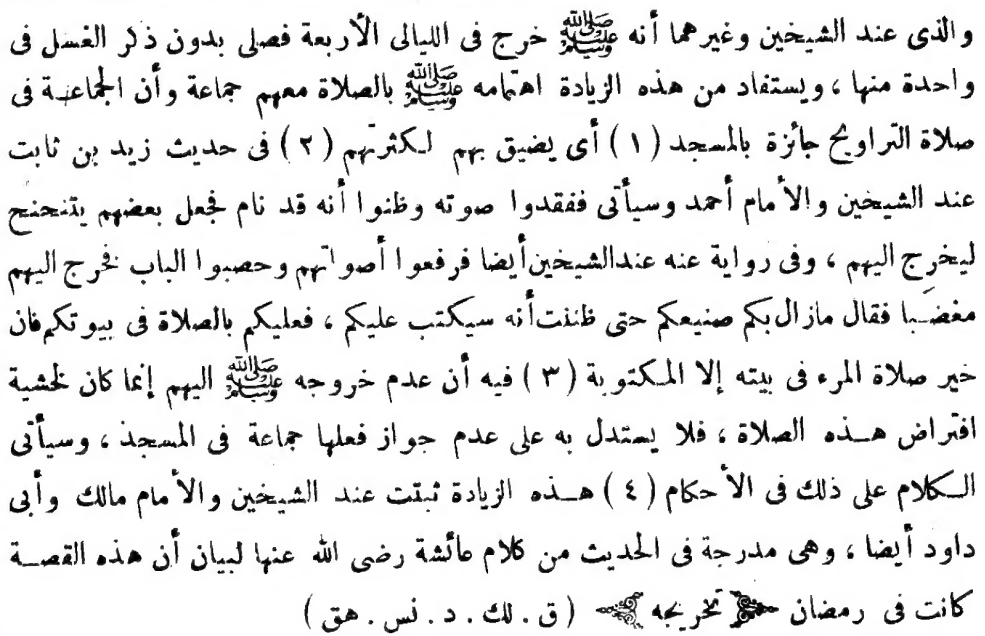 والذى عند الشيخين وغيرهما أنه ﷺ خرج فى الليالى الأربعة فصلى بدون ذكر الغسل فى
واحدة منها ، ويستفاد من هذه الزيادة اهتمامه ﷺ بالصلاة معهم جماعة وأن الجماعة فى
صلاة التراويح جائزة بالمسجد (١) أى يضيق بهم لكثرتهم (٢) فى حديث زيد بن ثابت
عند الشيخين والأمام أحمد وسيأتى ففقدوا صوته وظنوا أنه قد نام فجعل بعضهم يتنحنح
ليخرج اليهم ، وفى رواية عنه عند الشيخين أيضا فرفعوا أصواتهم وحصبوا الباب فخرج اليهم
مغضبا فقال مازال بكم صنيعكم حتى ظننت أنه سيكتب عليكم ، فعليكم بالصلاة فى بيوتكم فان
خير صلاة المرء فى بيته إلا المكتوبة (٣) فيه أن عدم خروجه ﷺ اليهم إنما كان لخشية
افتراض هذه الصلاة ، فلا يستدل به على عدم جواز فعلها جماعة فى المسجد ، وسيأتى
الكلام على ذلك فى الأحكام (٤) هذه الزيادة ثبتت عند الشيخين والأمام مالك وأبى
داود أيضا ، وهى مدرجة فى الحديث من كلام عائشة رضى الله عنها لبيان أن هذه القصة
كانت فى رمضان تخريجه (ق . لك . د . نس . هق)